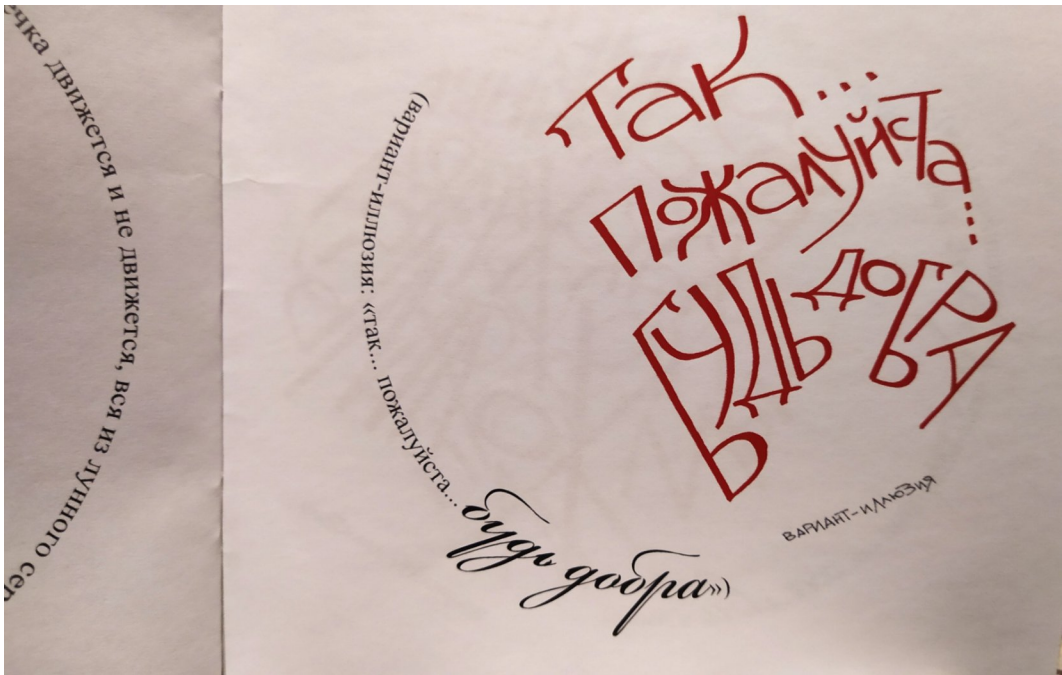 ечка движется и не движется, вся из лунного сер
(вариант-иллюзия: «так... пожалуйста... будь добра»)
Так...
пожалуйста...
будь добра
вариант-иллюзия